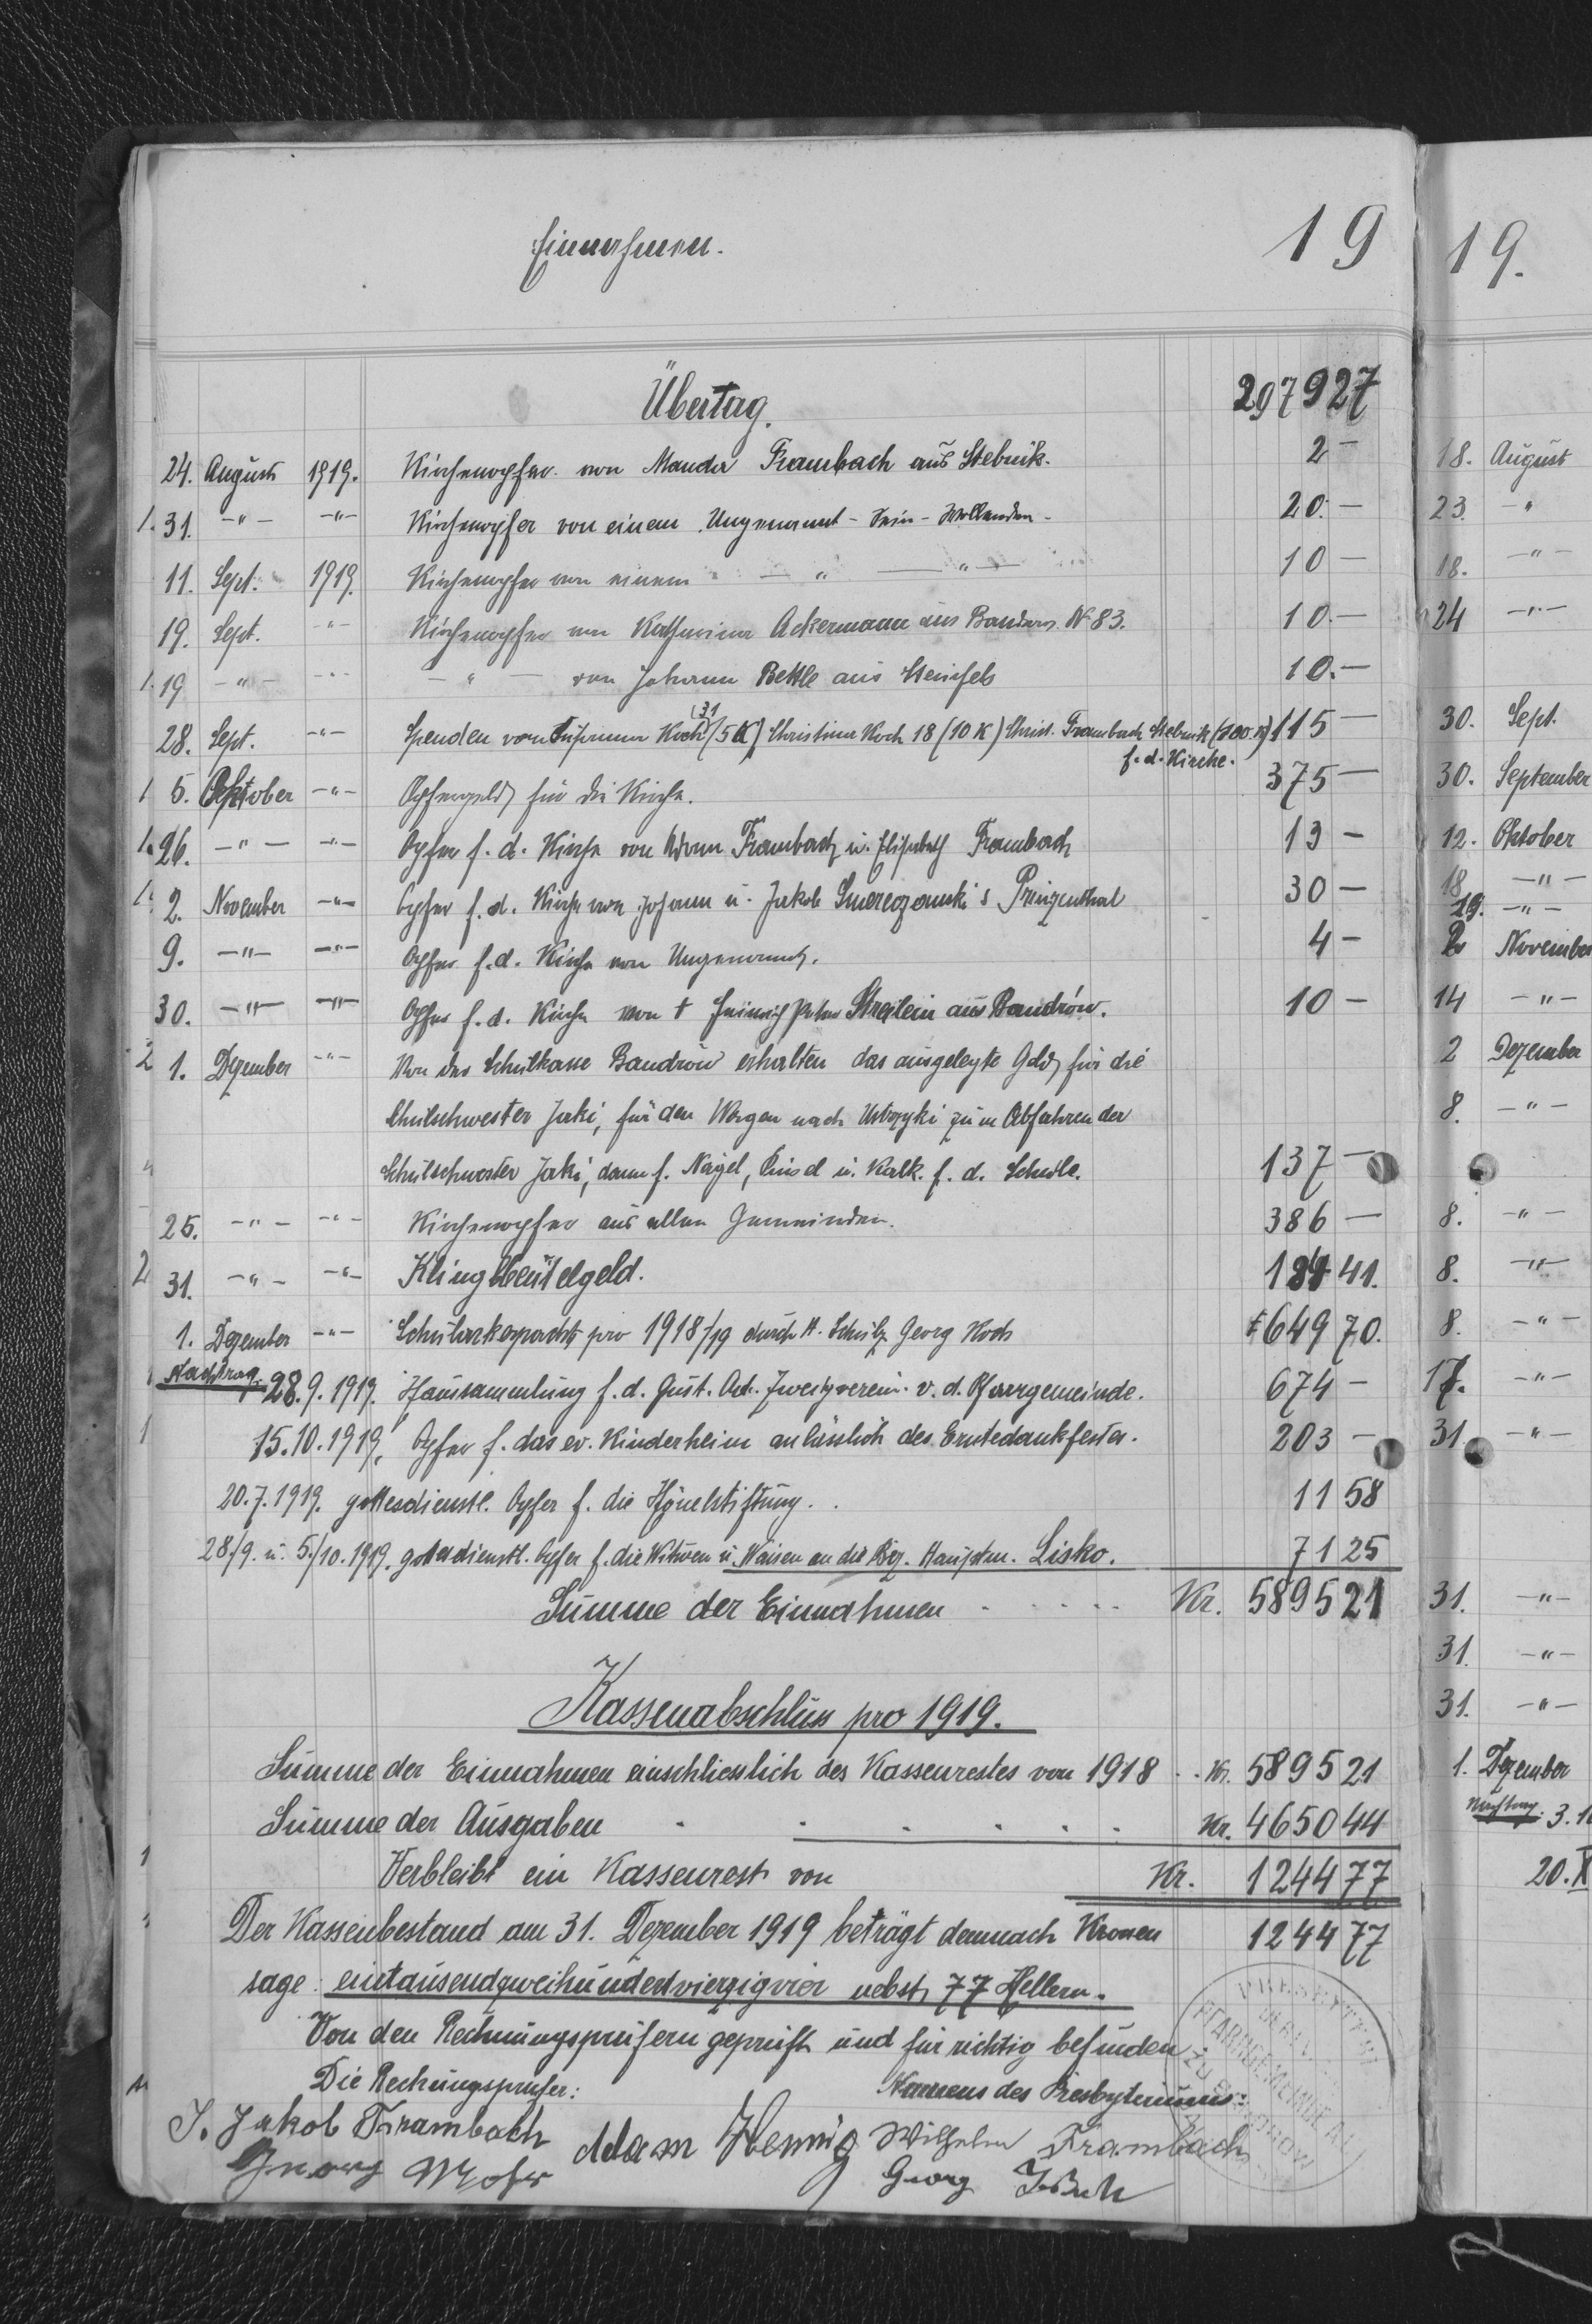 Einnahmen. 19
Übertag. 2979 27
24. August 1919. Kirchenopfer von Manda Frambach aus Stebnik. 2 —
1. 31. —"— —"— Kirchenopfer von einem Ungenannt-Sein-Wollenden- 20.—
11. Sept. 1919. Kirchenopfer von einem —"— —"— 10 —
19. Sept. —"— Kirchenopfer von Katharina Ackermann aus Bandrow N 83. 10.—
1. 19 —"— —"— —"— von Johann Bettle aus Steinfels 10.—
28. Sept. —"— Spenden von Johanna Koch 31 (5 K) Christina Koch 18 (10 K) Christ. Frambach Stebnik (100 K) 115 —
f. d. Kirche.
1 5. Oktober —"— Opfergeld für die Kirche. 375 —
1. 26. —"— —"— Opfer f. d. Kirche von Adam Frambach u. Elisabeth Frambach 13 —
1. 2. November —"— Opfer f. d. Kirche von Johann u. Jakob Smereczanski's Prinzenthal 30 —
9. —"— —"— Opfer f. d. Kirche von Ungenannt. 4 —
30. —"— —"— Opfer f. d. Kirche von † Heinrich Peter Streilein aus Bandrów. 10 —
2 1. Dezember —"— Von der Schulkasse Bandrów erhalten das ausgelegte Geld für die
Schulschwester Jaki, für den Wagen nach Ustrzyki zum Abfahren der
Schulschwester Jaki, dann f. Nägel, Pinsel u. Kalk. f. d. Schule. 137 —
25. —"— —"— Kirchenopfer aus allen Gemeinden. 386 —
2 31. —"— —"— Klingbeutelgeld. 184 41.
1. Dezember —"— Schulackerpacht pro 1918/19 durch H. Schulz Georg Koch 649 70.
1 Nachtrag. 28.9.1919. Haussammlung f. d. Gust. Ad. Zweigverein. v. d. Pfarrgemeinde. 674 —
1 15.10.1919, Opfer f. das ev. Kinderheim anlässlich des Erntedankfestes. 203 —
20.7.1919. gottesdienstl. Opfer f. die Hönelstiftung. 11 58
28./9. u. 5./10.1919. gottesdienstl. Opfer f. die Witwen u. Waisen an die Bez. Hauptm. Lisko. 71 25
Summe der Einnahmen . . . . . Kr. 5895 21
Kassenabschluss pro 1919.
Summe der Einnahmen einschliesslich des Kassenrestes von 1918 . . Kr. 5895 21
Summe der Ausgaben . . . . . . Kr. 4650 44
1 Verbleibt ein Kassenrest von Kr. 1244 77
Der Kassenbestand am 31. Dezember 1919 beträgt demnach Kronen 1244 77
sage: eintausendzweihundertvierzigvier nebst 77 Hellern.
Von den Rechnungsprüfern geprüft und für richtig befunden.
Die Rechungsprüfer: Namens des Presbyteriums:
J. Jakob Frambach Adam Hennig Wilhelm Frambach
Georg Mohr Georg
PRESBYTERIUM
PFARRGEMEINDE A.
ZU BANDROW
19.
18. August
23. —"
18. —"—
24 —"—
30. Sept.
30. September
12. Oktober
18. —"—
19. —"—
2. November
14 —"—
2 Dezember
8. —"—
8. —"—
8. —"—
8. —"—
17. —"—
31. —"—
31. —"—
31. —"—
31. —"—
1. Dezember
Nachtrag. 3.
20. X